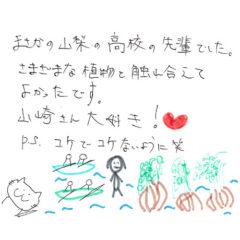 まさかの山梨の高校の先輩でした。
さまざまな植物と触れ合えて
よかったです。
山崎さん大好き!
P.S. コケでコケないように笑